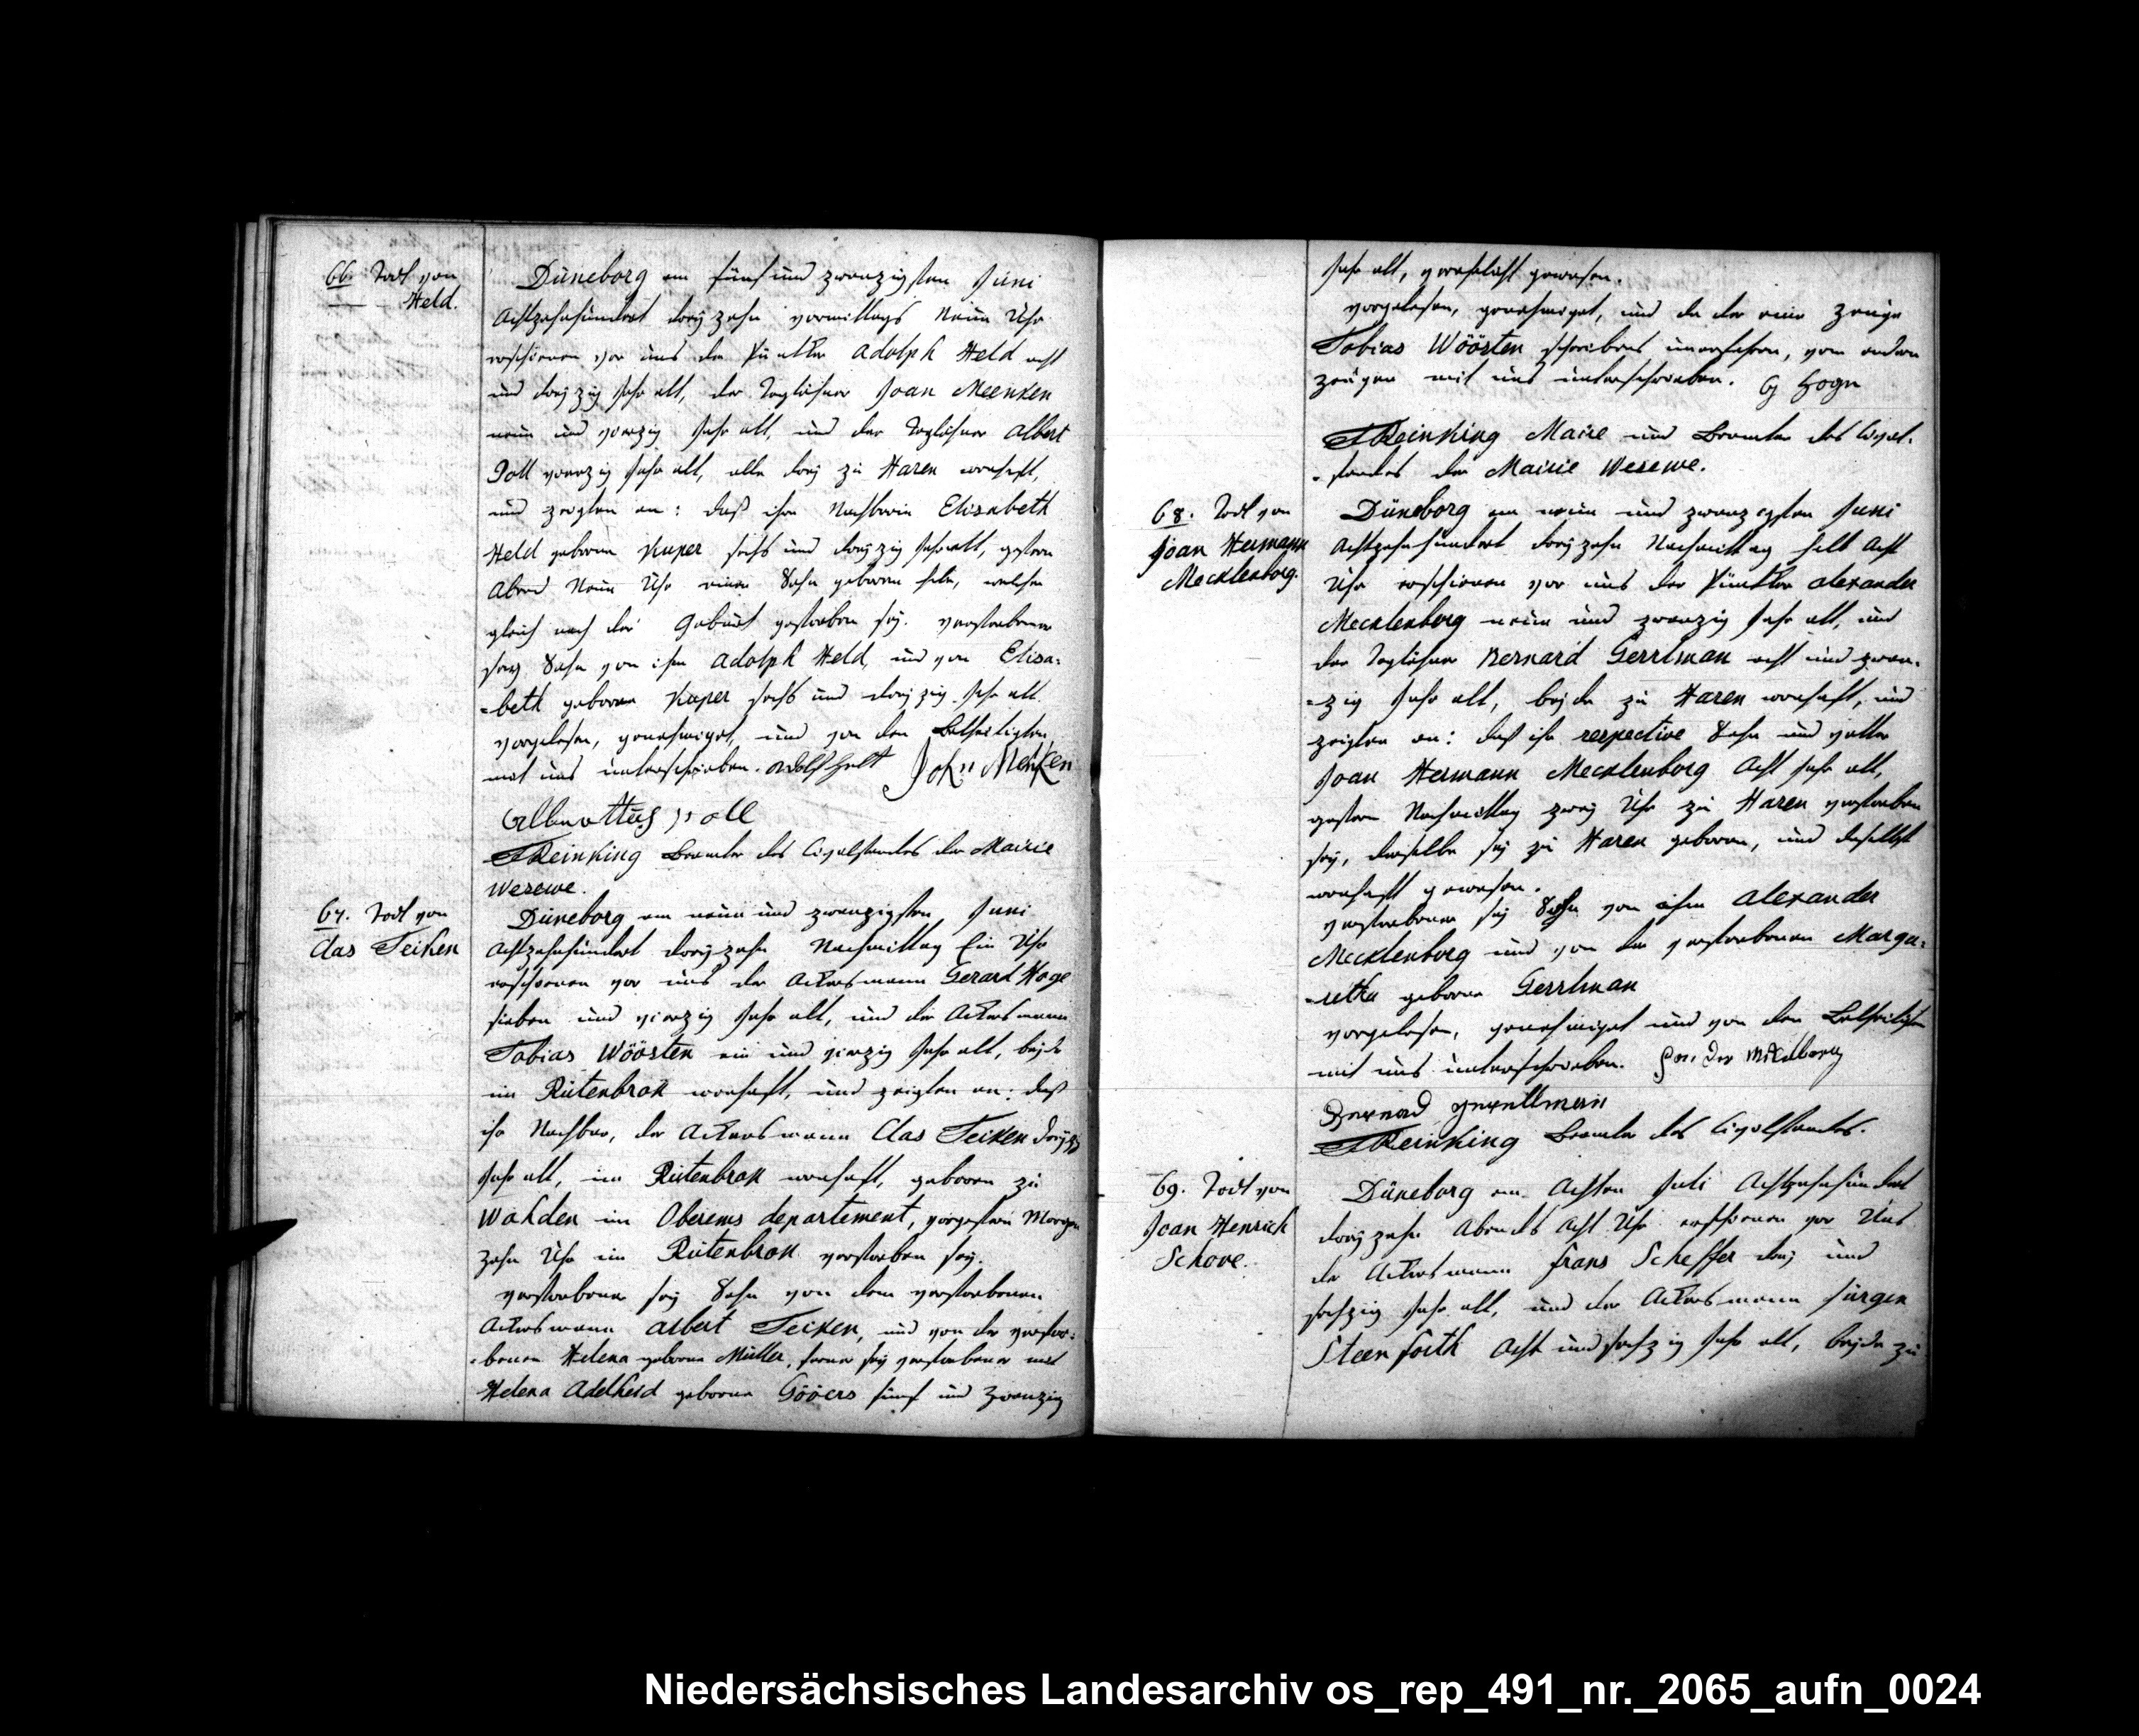 66. Todt von
Held.
Düneborg am fünf und zwanzigsten Juni
Achtzehnhundert dreyzehn vormittags Neun Uhr
erschienen vor uns der Pünther Adolph Held acht
und dreyzig Jahr alt, der Taglöhner Joan Meenken
neun und vierzig Jahr alt, und der Taglöhner Albert
Poll vierzig Jahr alt, alle drey zu Haren wonhaft,
und zeigten an: daß ihre Nachbarin Elisabeth
Held geborne Kuper sechs und dreyzig Jahr alt, gestern
Abend Neun Uhr einen Sohn geboren habe, welcher
gleich nach der Geburt gestorben sey. verstorbener
sey Sohn von ihm Adolph Held, und von Elisa-
-beth geborne Kuper sechs und dreyzig Jahr alt.
vorgelesen, genehmiget, und von den Betheiligten
mit uns unterschrieben. Adolf Helt John Menken
poll
Reinking Beamter des Civilstandes der Mairie
Wesewe.
67. Todt von
Clas Teiken
Düneborg am neun und zwanzigsten Juni
Achtzehnhundert dreyzehn Nachmittag Ein Uhr
erschienen vor uns der Ackersmann Gerard Hoge
sieben und vierzig Jahr alt, und der Ackersmann
Tobias Wöösten ein und vierzig Jahr alt, beyde
im Rütenbrok wonhaft, und zeigten an: daß
ihr Nachbar, der Ackersmann Clas Teiken dreyzig
Jahr alt, im Rütenbrok wonhaft, geboren zu
Wahden im Oberems departement, vorgestern Morgen
zehn Uhr im Rütenbrok verstorben sey.
verstorbener sey Sohn von dem verstorbenen
Ackersmann Albert Teiken, und von der verstor-
-benen Helena geborne Müller, ferner sey verstorbener mit
Helena Adelheid geborne Gööers fünf und zwanzig
Jahr alt, verehelicht gewesen.
vorgelesen, genehmiget, und da der eine Zeuge
Tobias Wöösten schreibens unerfahren, vom andern
zeugen mit uns unterschrieben. G Hoge
Reinking Maire und Beamter des Civil-
-standes der Mairie Wesewe.
68. Todt von
Joan Hermann
Mecklenborg.
Düneborg am neun und zwanzigsten Juni
Achtzehnhundert dreyzehn Nachmittag halb Acht
Uhr erschienen vor uns der Pünther Alexander
Mecklenborg neun und zwanzig Jahr alt, und
der Taglöhner Bernard Gerrlman acht und zwan-
-zig Jahr alt, beyde zu Haren wonhaft, und
zeigten an: daß ihr respective Sohn und vetter
Joan Hermann Mecklenborg Acht Jahr alt,
gestern Nachmittag zwey Uhr zu Haren verstorben
sey, derselbe sey zu Haren geboren, und daselbst
wonhaft gewesen.
verstorbener sey Sohn von ihm Alexander
Mecklenborg und von der verstorbenen Marga-
-retha geborne Gerrlman
vorgelesen, genehmiget und von den Betheiligten
mit uns unterschrieben.
Bernad
Reinking Beamter des Civilstandes.
69. Todt von
Joan Henrich
Schove.
Düneborg am Achten Juli Achtzehnhundert
dreyzehn Abends Acht Uhr erschienen vor Uns
der Ackersmann Frans Scheffer drey und
sechzig Jahr alt, und der Ackersmann Jürgen
Steenforth Acht und sechzig Jahr alt, beyde zu
Niedersächsisches Landesarchiv os_rep_491_nr._2065_aufn_0024